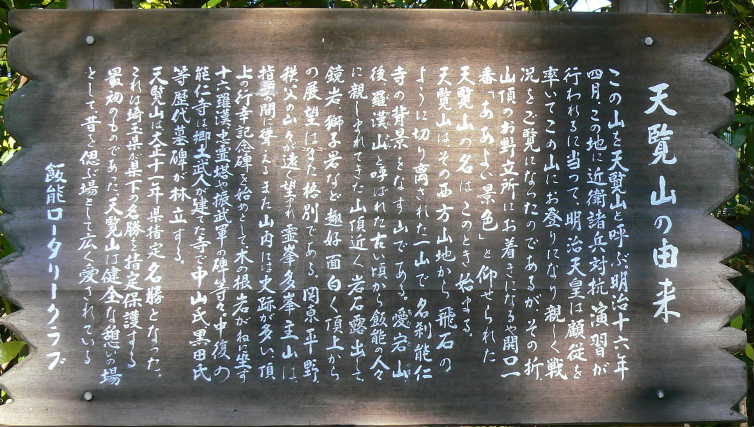 天覧山の由来
この山を天覧山と呼ぶ。明治十六年
四月、この地に近衛諸兵対抗演習が
行われるに当って、明治天皇は扈従を
率いてこの山にお登りになり親しく戦
況をご覧になったのであるが、その折、
山頂のお野立所にお着きになるや開口一
番「ああよい景色」と仰せられた
天覧山の名はこのとき始まる。
天覧山はその西方山地から、飛石の
ように切り離された一山で、名刹能仁
寺の背景をなす山である。愛宕山、
後羅漢山と呼ばれた古い頃から飯能の人々
に親しまれてきた山頂近く岩石露出して、
鏡岩、獅子岩など趣好面白く頂上から
の展望はまた格別である。関東平野、
秩父の山々が遠く望まれ、霊峯多峯主山は、
指呼の間に聳える。また山内には史跡が多い。頂
上の行幸記念碑を始めとして、木の根岩がねに坐す
十六羅漢、忠霊塔や振武軍の碑等々、中復の
能仁寺は郷土武人が建た寺で中山氏黒田氏
等歴代墓碑が林立する。
天覧山は大正十一年県指定名勝となった。
これは埼玉県が県下の名勝を指定保護する
最初のものであた。天覧山は健全な憩いの場
として、昔を偲ぶ場として広く愛されている
飯能ロータリークラブ